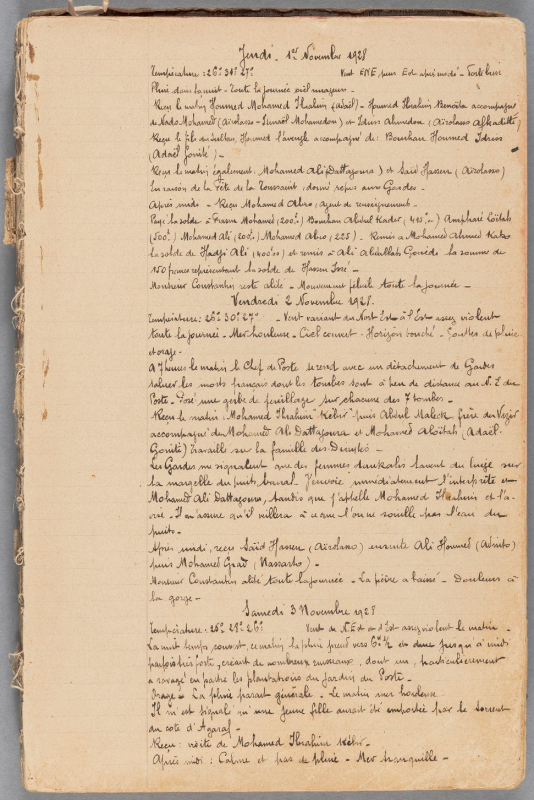 Jeudi. 1er Novembre 1928
Température : 26° 31° 27° Vent ENE puis Est après midi - Forte brise
Pluie dans la nuit - Toute la journée ciel nuageux -
Reçu le matin Houmed Mohamed Ibrahim (Adaël) - Houmed Ibrahim accompagné
de Nado Mohamed (Aïrolasso - Ismaël Mohamedou) et Idriss Ahmedou (Aïrolasso
Reçu le fils du Sultan, Houmed l'aveugle accompagné de : Bourhan Houmed Idriss
(Adaël Gonité) -
Reçu le matin également, Mohamed Ali (Dattagoura) et Saïd Hassen (Aïrolasso)
En raison de la Fête de la Toussaint, donné repos aux Gardes -
Après midi - Reçu Mohamed Abro, agent de renseignements -
Payé la solde à Mohamed (200.) Bourhan Abdul Kader, Amphare Loïtah
(500.) Mohamed Ali (200.) Mohamed Abro (225) - Remis à Mohamed Ahmed
la solde de Hadji Ali (400.00) et remis à Ali Abdullah la somme de
150 francs représentant la solde de Hassen Issé -
Monsieur Constantin reste alité - Mouvement fébrile toute la journée -
Vendredi 2 Novembre 1928.
Température : 26° 30° 27° - Vent variant du Nort Est à l'Est assez violent
toute la journée - Mer houleuse - Ciel couvert - Horizon bouché - Gouttes de pluie
et orage -
A 7 heures le matin le Chef de Poste se rend avec un détachement de Gardes
saluer les morts français dont les tombes sont à peu de distance au N.E. du
Poste - Posé une gerbe de feuillage sur chacune des 7 tombes -
Reçu le matin : Mohamed Ibrahim Kébir - puis Abdul Maleck, frère du Vizir
accompagné de Mohamed Ali Dattagoura et Mohamed Aboïtah (Adaël -
Gonité) Travaillé sur la famille des
Les Gardes me signalent que des femmes dankalis lavent du linge sur
la margelle du puits banal. J'envoie immédiatement l'interprète et
Mohamed Ali Dattagoura, tandis que j'appelle Mohamed Ibrahim et l'a-
vise - Il m'assure qu'il veillera à ce que l'on ne souille pas l'eau du
puits -
Après midi, reçu Saïd Hassen (Aïrolasso) ensuite Ali Houmed
puis Mohamed
Monsieur Constantin alité toute la journée - La fièvre a baissé - Douleurs à
la gorge -
Samedi 3 Novembre 1928
Température : 25° 28° 26° Vent du N.Est et d'Est assez violent le matin -
La nuit temps couvert, ce matin la pluie prend vers 6h 1/2 et dure jusqu'à midi
parfois très forte, créant de nombreux ruisseaux, dont un, particulièrement
a ravagé en partie les plantations du jardin du Poste -
Orages - La pluie parait générale - Le matin mer houleuse -
Il m'est signalé qu'une jeune fille aurait été emportée par le torrent
du coté d'Agaraf -
Reçu : visite de Mohamed Ibrahim Kébir -
Après midi : Calme et pas de pluie - Mer tranquille -